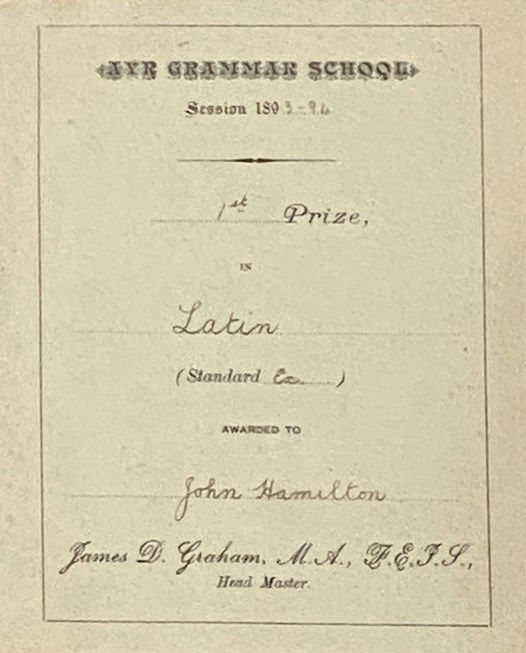 AYR GRAMMAR SCHOOL
Session 1893-94
1st Prize,
IN
Latin
(Standard Ex.)
AWARDED TO
John Hamilton
James D. Graham, M.A., F.E.I.S.,
Head Master.